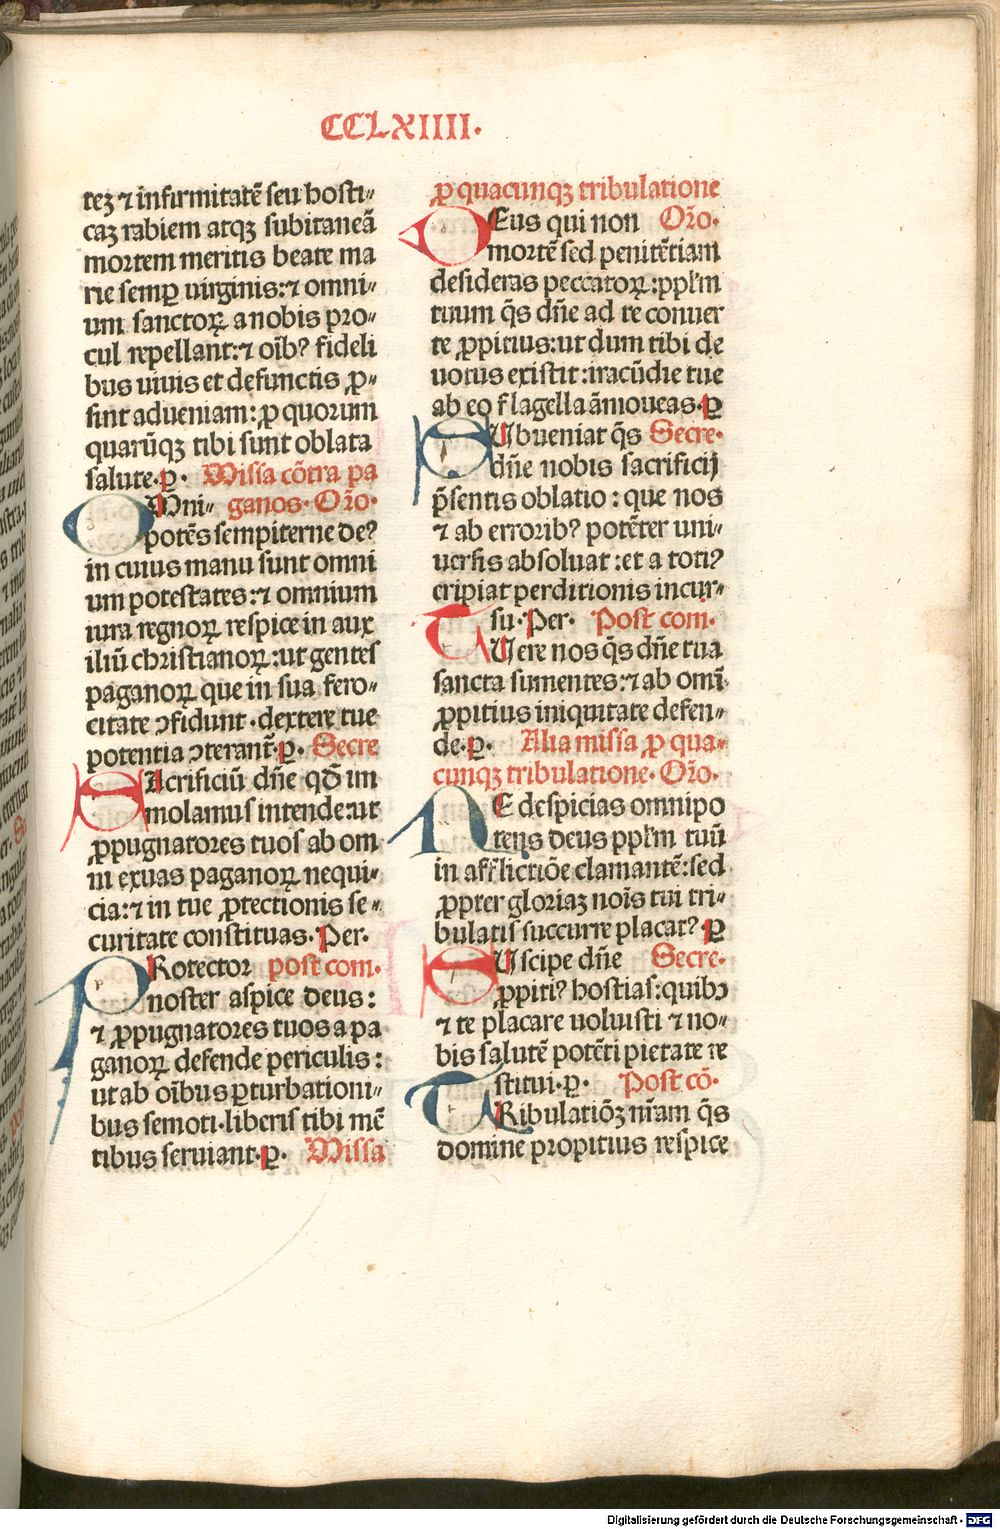 CCLXIIII.
teꝫ ⁊ infirmitatē seu hosti⸗
caꝫ rabiem atqꝫ subitaneā
mortem meritis beate ma
rie semꝑ virginis:⁊ omni⸗
um sanctoꝝ a nobis pro⸗
cul repellant:⁊ oib᾿ fideli
bus viuis et defunctis ꝓ⸗
sint adueniam: ꝓ quorum
quarūqꝫ tibi sunt oblata
salute.ꝑ. Missa cōtra pa
OMni⸗ ganos. Oro.
potēs sempiterne de᾿
in cuius manu sunt omni
um potestates:⁊ omnium
iura regnoꝝ respice in aux
iliū christianoꝝ:ut gentes
paganoꝝ que in sua fero⸗
citate ↄfidunt.dextere tue
potentia ↄterant̄.ꝑ. Secre
SAcrificiū dn̄e qd̄ im
molamus intende:ut
ꝓpugnatores tuos ab om
ni exuas paganoꝝ nequi⸗
cia:⁊ in tue ꝓtectionis se⸗
curitate constituas. Per.
PRotector post com.
noster aspice deus:
⁊ ꝓpugnatores tuos a pa
ganoꝝ defende periculis:
ut ab oībus ꝑturbationi⸗
bus semoti.liberis tibi mē
tibus seruiant.ꝑ. Missa
ꝓ quacunqꝫ tribulatione
DEus qui non Oro.
mortē sed penitētiam
desideras peccatoꝝ:ppl̄m
tuum q̄s dn̄e ad te conuer
te ꝓpitius:ut dum tibi de
uotus existit:iracūdie tue
ab eo flagella āmoueas.ꝑ
SUbueniat q̄s Secre.
dn̄e nobis sacrificij
p̄sentis oblatio: que nos
⁊ ab errorib᾿ potēter uni⸗
uersis absoluat:et a toti᾿
eripiat perditionis incur⸗
su.Per. Post com.
TUere nos q̄s dn̄e tua
sancta sumentes:⁊ ab omī
ꝓpitius iniquitate defen⸗
de.ꝑ. Alia missa ꝓ qua⸗
cunqꝫ tribulatione. Oro.
NE despicias omnipo
tens deus ppl̄m tuū
in afflictiōe clamantē:sed
ꝓpter gloriaꝫ nois tui tri⸗
bulatis succurre placat᾿.ꝑ
SUscipe dn̄e Secre.
ꝓpiti᾿ hostias:quibꝫ
⁊ te placare uoluisti ⁊ no⸗
bis salutē potēti pietate re
stitui.ꝑ. Post cō.
TRibulatiōꝫ nr̄am q̄s
domine propitius respice
Digitalisierung gefördert durch die Deutsche Forschungsgemeinschaft - DFG